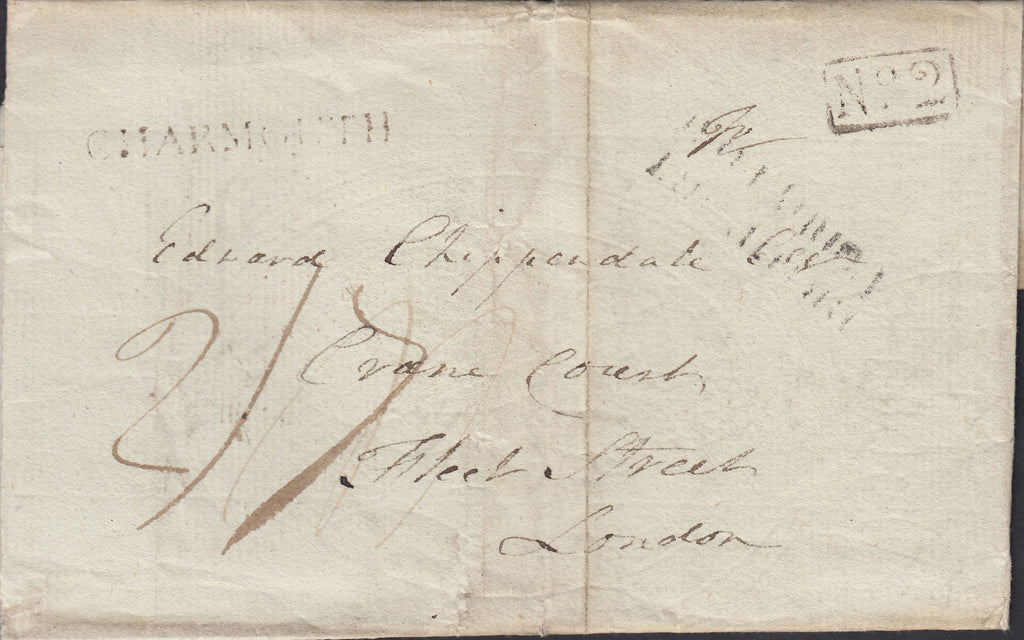 No. 2
CHARMOUTH
Edward Chippendale Esq
Crane Court
Fleet Street
London
2/7